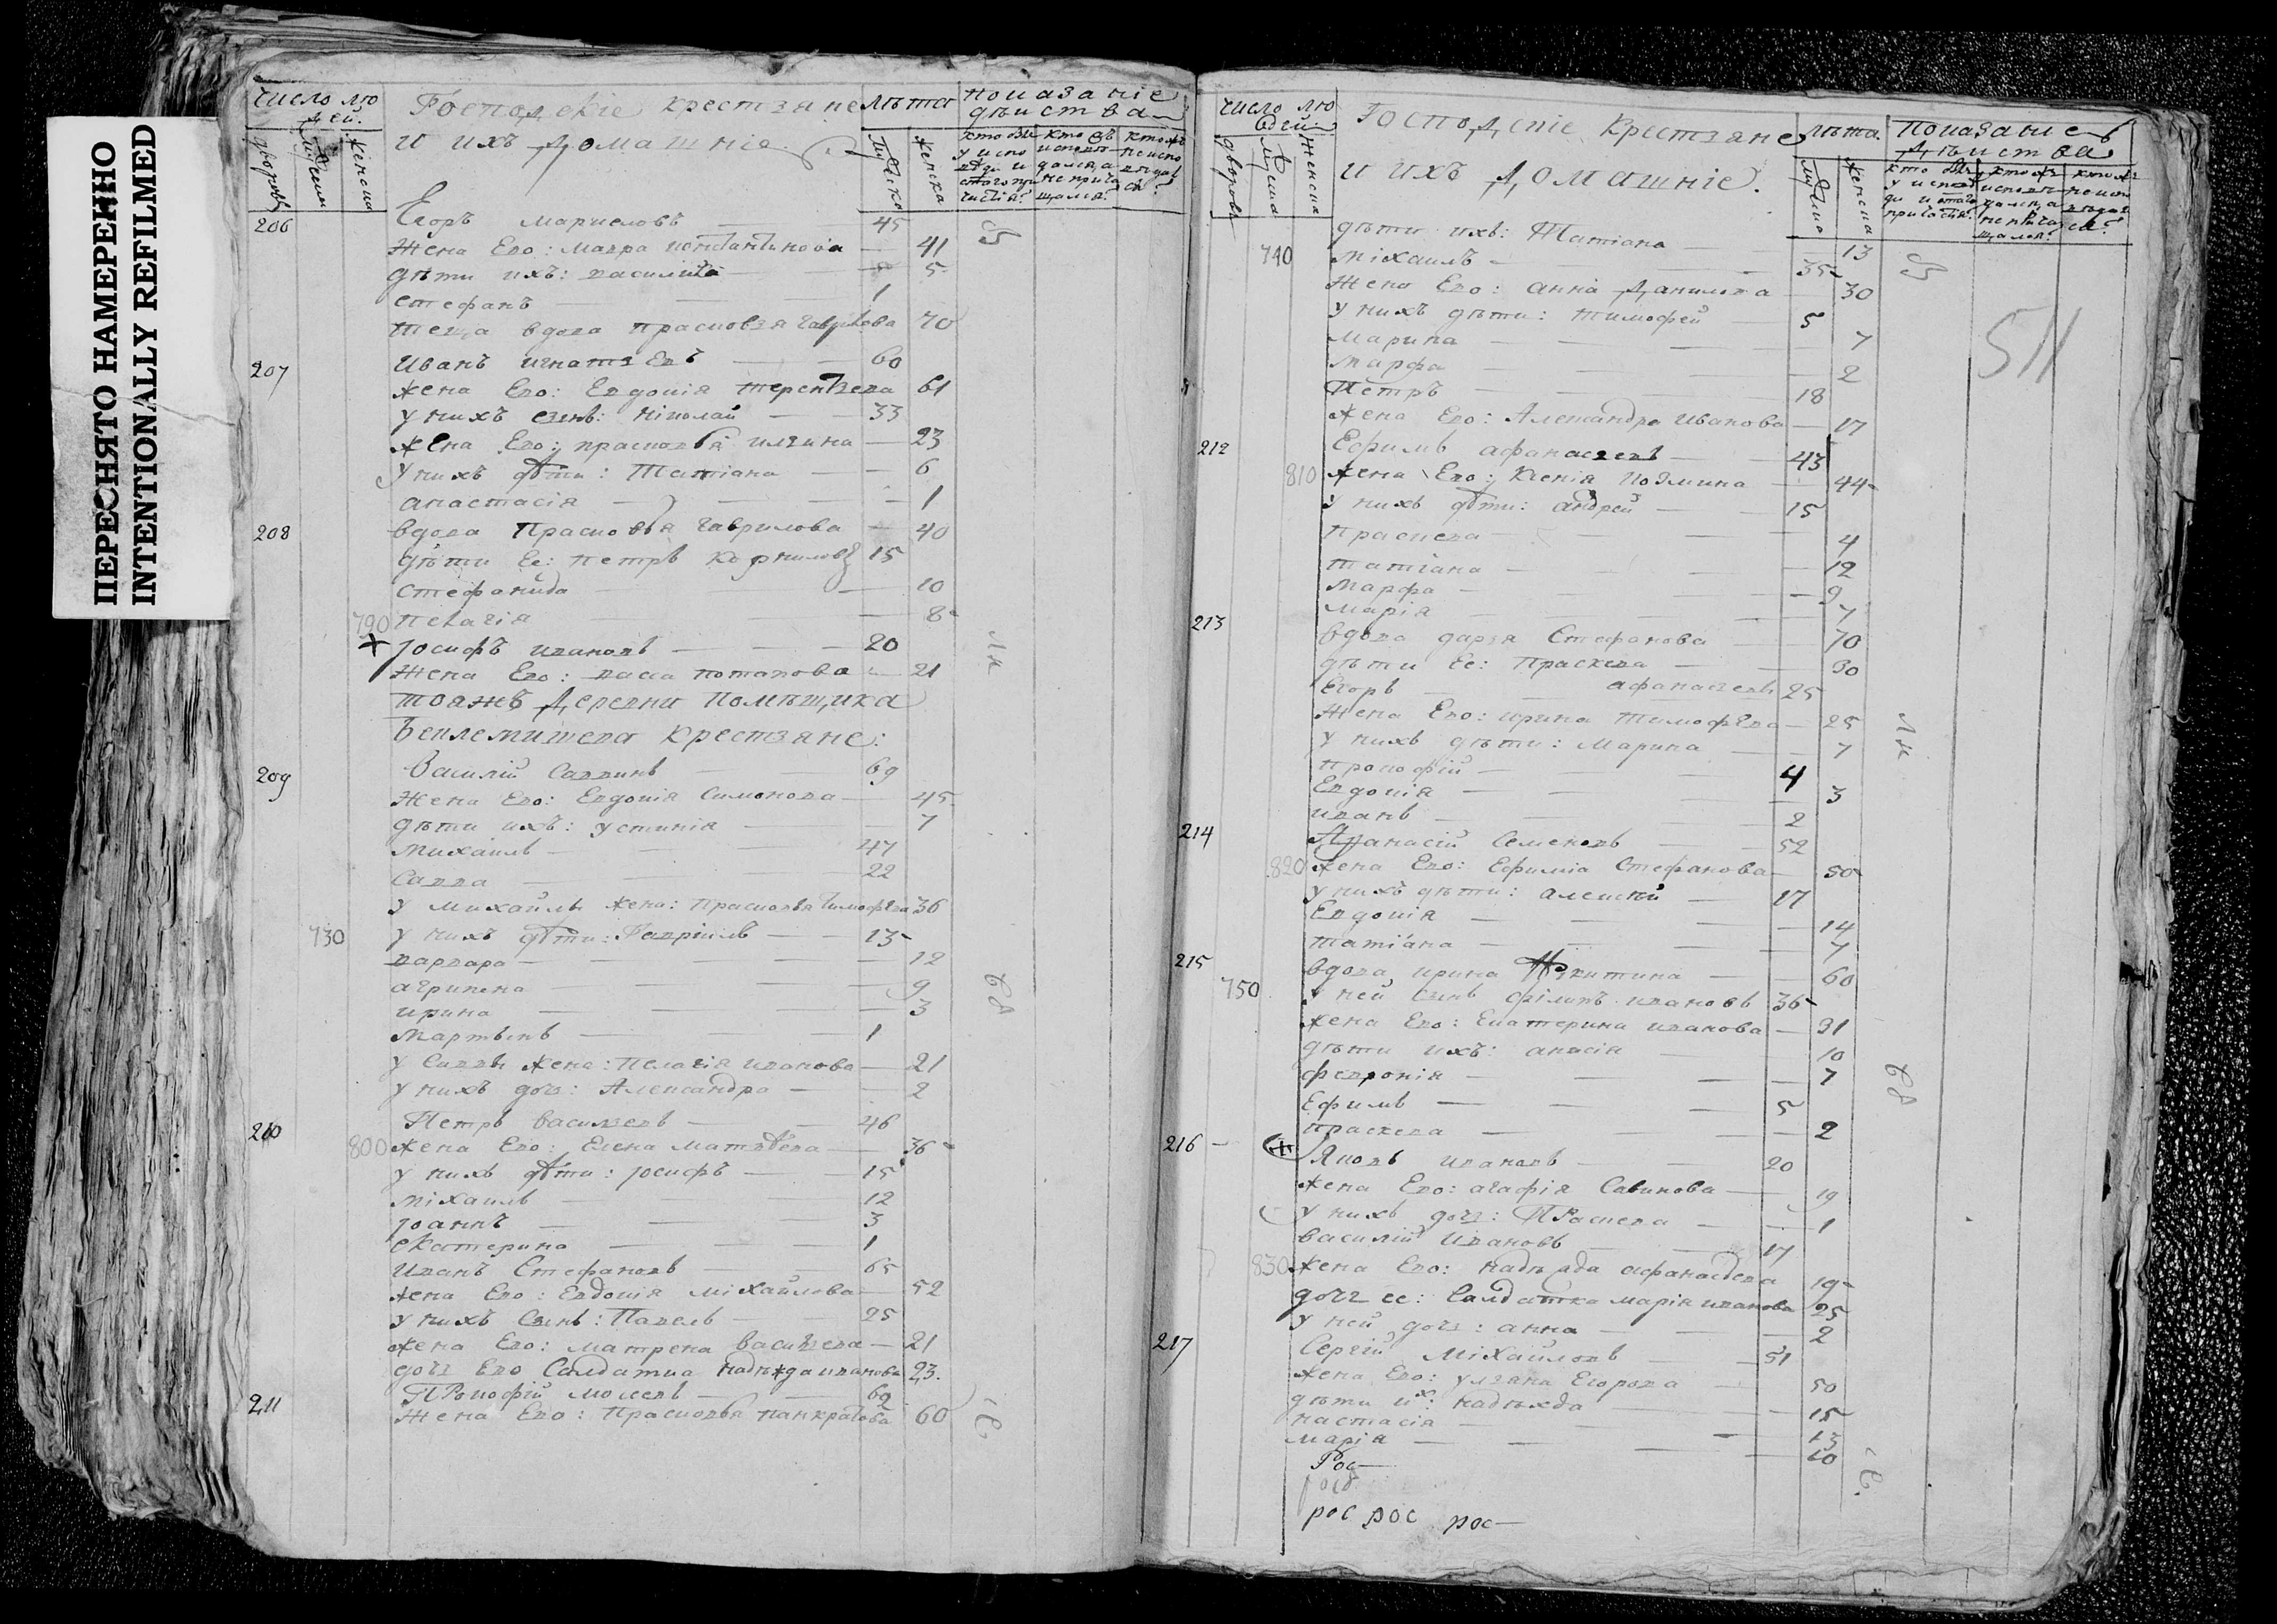 ПЕРЕСНЯТО НАМЕРЕННО
INTENTIONALLY REFILMED
число лю
дей.
Господскіе крестьяне
и ихъ домашніе.
лѣта
показаніе
дѣиства
дворовъ
мужеска
женска
206 Егоръ 45
Жена Его: Мавра Константинова — 41
дѣти ихъ: василиса — 5
стефанъ — 1
теща вдова прасковья гаврилова 70
207 Иванъ игнатьевъ — 60
жена Его: Евдокія терентьева 61
у нихъ сынъ: николай — 33
жена Его: прасковья ильина — 23
у нихъ дѣти: Татіана — 6
анастасія — 1
208 вдова Прасковья гаврилова — 40
дѣти Ее: петръ корниловъ 15
стефанида — 10
790 пелагія — 8
Іосифъ ивановъ — 20
жена Его: васса потапова — 21
тояжъ деревни помѣщика
Беклемишева крестьяне:
209 Василій Саввинъ — 69
жена Его: Евдокія Симонова — 45
дѣти ихъ: устинія — 7
михаилъ — 47
савва — 22
у михаилы жена: Прасковья тимофѣева 36
730 у нихъ дѣти: Гавріилъ — 13
варвара — 12
агрипена — 9
ирина — 3
мартынъ — 1
у саввы жена: Пелагія иванова — 21
у нихъ дочь: Александра — 2
210 Петръ васильевъ — 46
800 жена Его: Елена матвѣева — 36
у нихъ дѣти: Іосифъ — 15
міхаилъ — 12
Іоаннъ — 3
екатерина — 1
иванъ Стефановъ — 65
жена Его: Евдокія міхайлова — 52
у нихъ сынъ: Павелъ — 25
жена Его: матрена васильева — 21
дочь Его Салдатка надежда иванова 23.
211 Прокофій мосеевъ — 62
жена Его: Прасковья панкратова 60
число лю
дей
Господскіе крестьяне
и ихъ домашніе.
лѣта.
показаніе
дѣиства
дворовъ
мужеска
женска
511
дѣти ихъ: Татіана — 13
740 міхаилъ — 35
жена Его: анна данилова — 30
у нихъ дѣти: тимофей — 5
марина — 7
марфа — 2
Петръ — 18
жена Его: Александра Иванова — 17
212 Ефимъ афанасьевъ — 43
810 жена Его: Ксенія козмина — 44
у нихъ дѣти: андрей — 15
Праскева — 4
татіана — 12
марфа — 9
марія — 7
213 вдова дарья Стефанова — 70
дѣти Ее: Праскева — 30
Егоръ афанасьевъ 25
жена Его: ирина тимофѣева — 25
у нихъ дѣти: Марина — 7
прокофій — 4
Евдокія — 3
иванъ — 2
214 Афанасій Семеновъ — 52
820 жена Его: Ефимія Стефанова — 50
у нихъ дѣти: алексѣй — 17
Евдокія — 14
татіана — 7
215 вдова ирина Никитина — 60
750 у ней сынъ філипъ ивановъ 36
жена Его: Екатерина иванова — 31
дѣти ихъ: анисія — 10
февронія — 7
Ефимъ — 5
праскева — 2
216 — Яковъ ивановъ — 20
жена Его: агафія Савинова — 19
у нихъ дочь: Праскева — 1
василій Ивановъ — 17
830 жена Его: надежда афанасьева 19
дочь ее: Салдатка марія иванова 25
у ней дочь: анна — 2
217 Сергій Міхайловъ — 51
жена Его: ульяна Егорова — 50
дѣти их: надежда — 15
настасія — 13
марія — 10
Рос
рос
рос рос рос